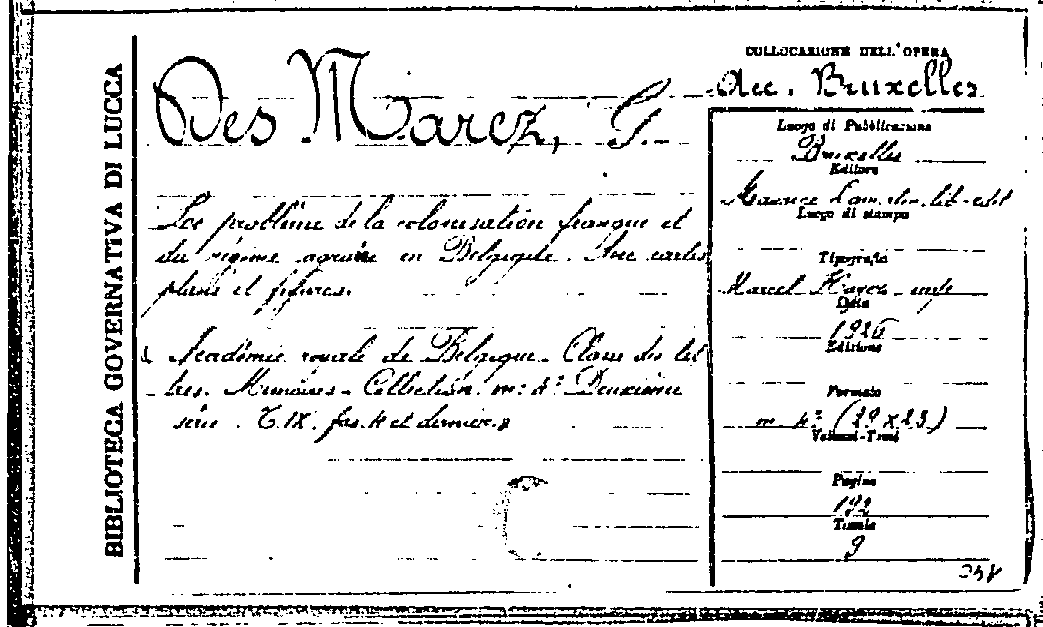 BIBLIOTECA GOVERNATIVA DI LUCCA
Des Marez, G.
Le problème de la colonisation franque et
du régime agraire en Belgique. Avec cartes
plans et figures.
Académie royale de Belgique - Classe des let
tres. Mémoires - Collection in: 4º Deuxième
série. T. IX. fas. 4 et dernier.
COLLOCAZIONE DELL'OPERA
Acc. Bruxelles
Luogo di Pubblicazione
Bruxelles
Editore
Maurice Lamertin. lib-edit
Luogo di stampa
Tipografia
Marcel Hayez imp
Data
1926
Edizione
Formato
in 4º (29 x 23)
Volumi-Tomi
Pagine
192
Tavole
9